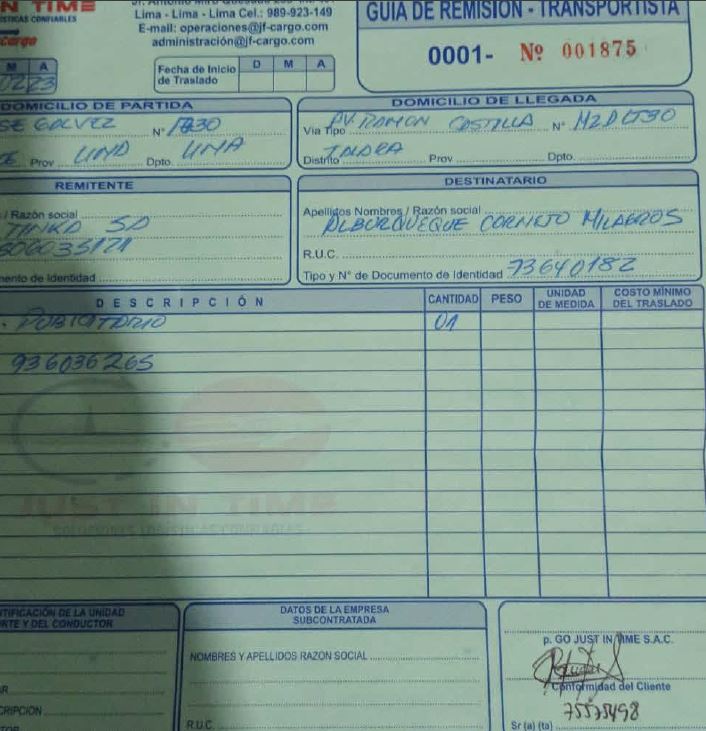 N TIME
ÍSTICAS CONFIABLES
Cargo
Lima - Lima - Lima Cel.: 989-923-149
E-mail: operaciones@jf-cargo.com
administración@jf-cargo.com
GUIA DE REMISIÓN - TRANSPORTISTA
0001- Nº 001875
M A
0223
Fecha de Inicio
de Traslado
D M A
DOMICILIO DE PARTIDA
SE GALVEZ Nº
Prov. LIMA Dpto. LIMA
DOMICILIO DE LLEGADA
Via Tipo AV. RAMON CASTILLA Nº MZD LT30
Distrito TALARA Prov. Dpto.
REMITENTE
/ Razón social
TINKA SA
mento de Identidad
DESTINATARIO
Apellidos Nombres / Razón social
ALBURQUEQUE CORNEJO MILAGROS
R.U.C.
Tipo y N° de Documento de Identidad 73640182
DESCRIPCIÓN
CANTIDAD
PESO
UNIDAD
DE MEDIDA
COSTO MÍNIMO
DEL TRASLADO
01
936036265
JUST IN TIME
SOLUCIONES LOGISTICAS CONFIABLES
NTIFICACIÓN DE LA UNIDAD
ORTE Y DEL CONDUCTOR
CRIPCION
DATOS DE LA EMPRESA
SUBCONTRATADA
NOMBRES Y APELLIDOS RAZON SOCIAL
R.U.C.
p. GO JUST IN TIME S.A.C.
Conformidad del Cliente
75575498
Sr (a) (ta)